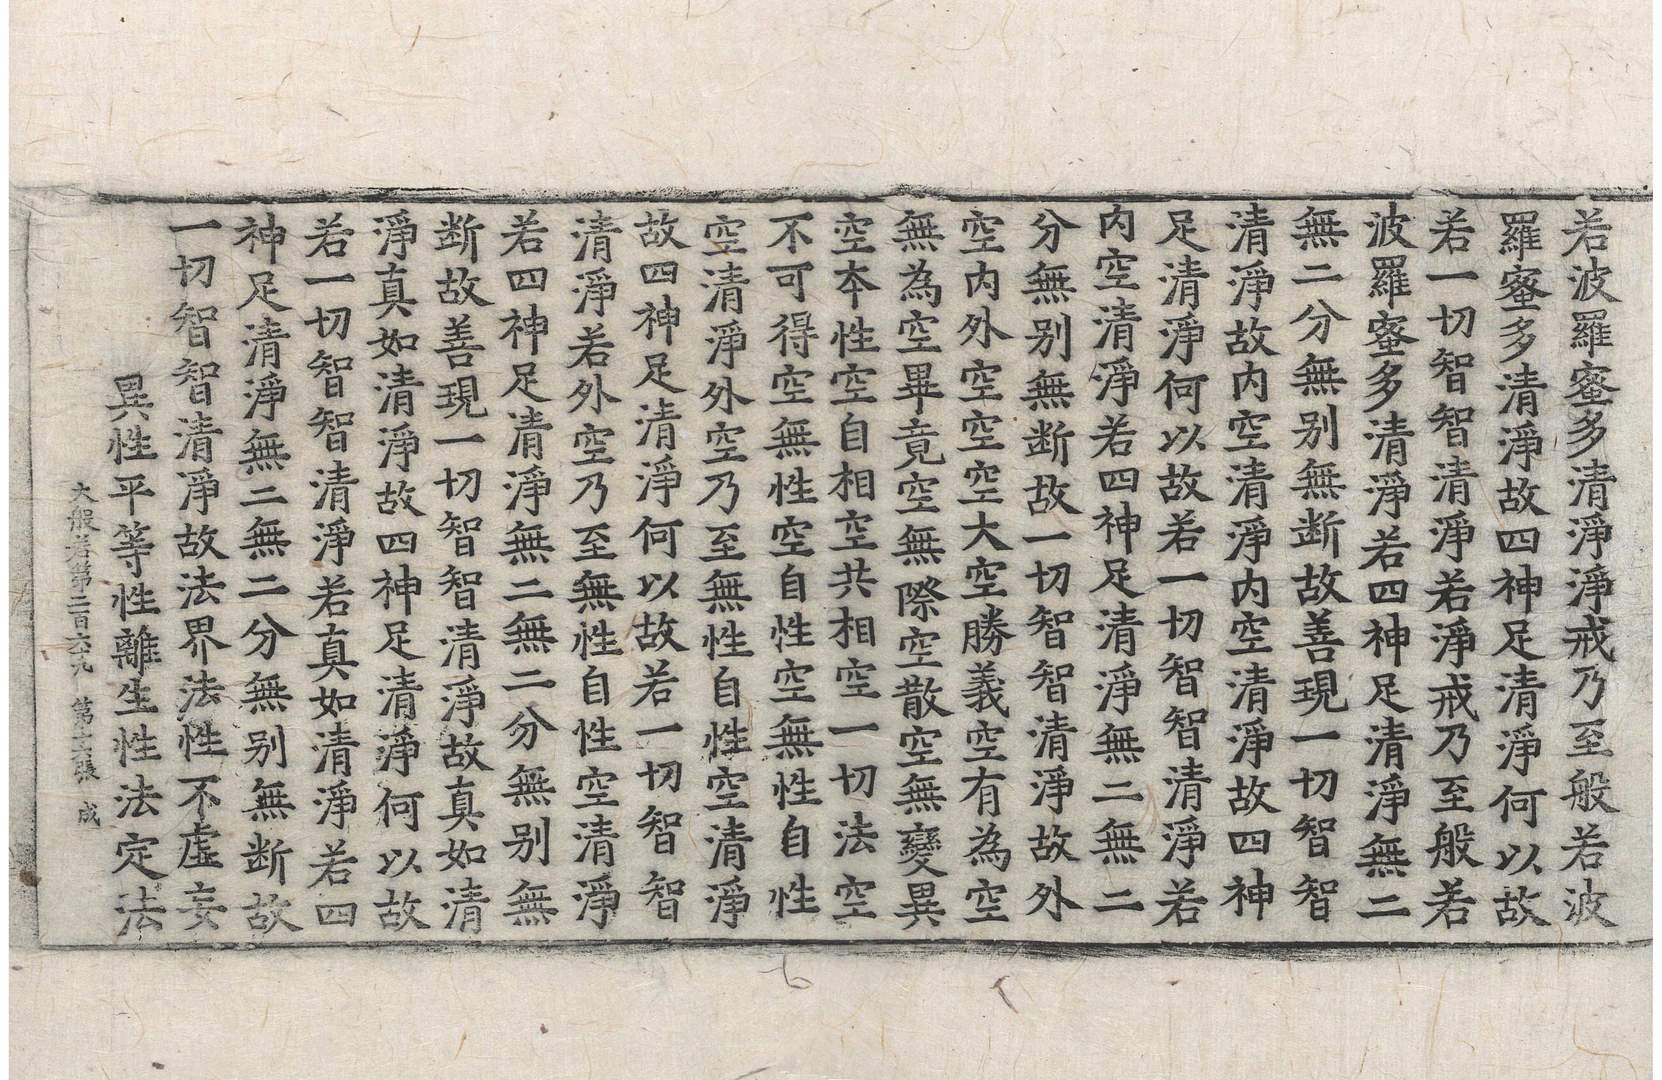 若波羅蜜多清淨淨戒乃至般若波
羅蜜多清淨故四神足清淨何以故
若一切智智清淨若淨戒乃至般若
波羅蜜多清淨若四神足清淨無二
無二分無别無断故善現一切智智
清淨故内空清淨内空清淨故四神
足清淨何以故若一切智智清淨若
内空清淨若四神足清淨無二無二
分無别無断故一切智智清淨故外
空内外空空空大空勝義空有為空
無為空畢竟空無際空散空無變異
空本性空自相空共相空一切法空
不可得空無性空自性空無性自性
空清淨外空乃至無性自性空清淨
故四神足清淨何以故若一切智智
清淨若外空乃至無性自性空清淨
若四神足清淨無二無二分無别無
断故善現一切智智清淨故真如清
淨真如清淨故四神足清淨何以故
若一切智智清淨若真如清淨若四
神足清淨無二無二分無别無断故
一切智智清淨故法界法性不虚妄
異性平等性離生性法定法
大般若第二百六九 第十六張 成